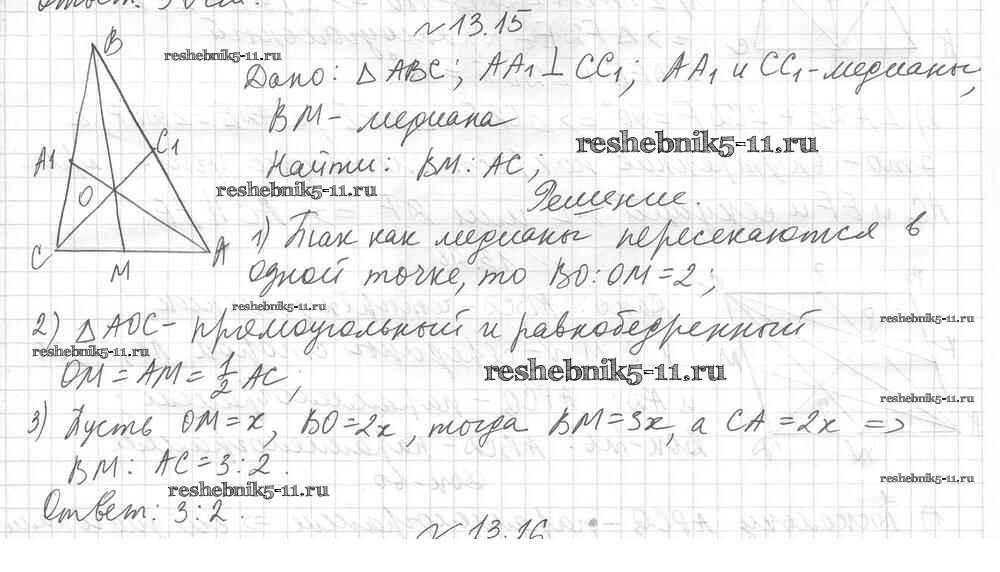 № 13.15
reshebnik5-11.ru
Дано: △ABC; AA₁ ⊥ CC₁; AA₁ и CC₁ - медианы,
BM - медиана
reshebnik5-11.ru
Найти: BM : AC;
reshebnik5-11.ru
Решение.
B
A1
C1
O
C
M
A
1) Так как медианы пересекаются в
одной точке, то BO : OM = 2;
reshebnik5-11.ru
2) △AOC - прямоугольный и равнобедренный
reshebnik5-11.ru
reshebnik5-11.ru
OM = AM = 1/2 AC;
reshebnik5-11.ru
reshebnik5-11.ru
3) Пусть OM = x, BO = 2x, тогда BM = 3x, а CA = 2x =>
BM : AC = 3 : 2.
reshebnik5-11.ru
reshebnik5-11.ru
Ответ: 3 : 2.
№ 13.16